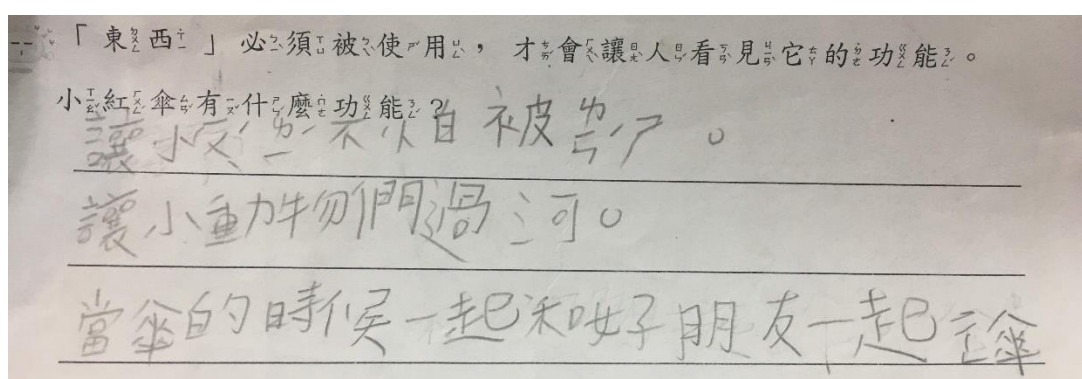 「東西」必須被使用，才會讓人看見它的功能。
小紅傘有什麼功能？
讓小 不怕被ㄌㄣˊㄕ。
讓小動物們過河。
當傘的時候一起和好朋友一起 傘